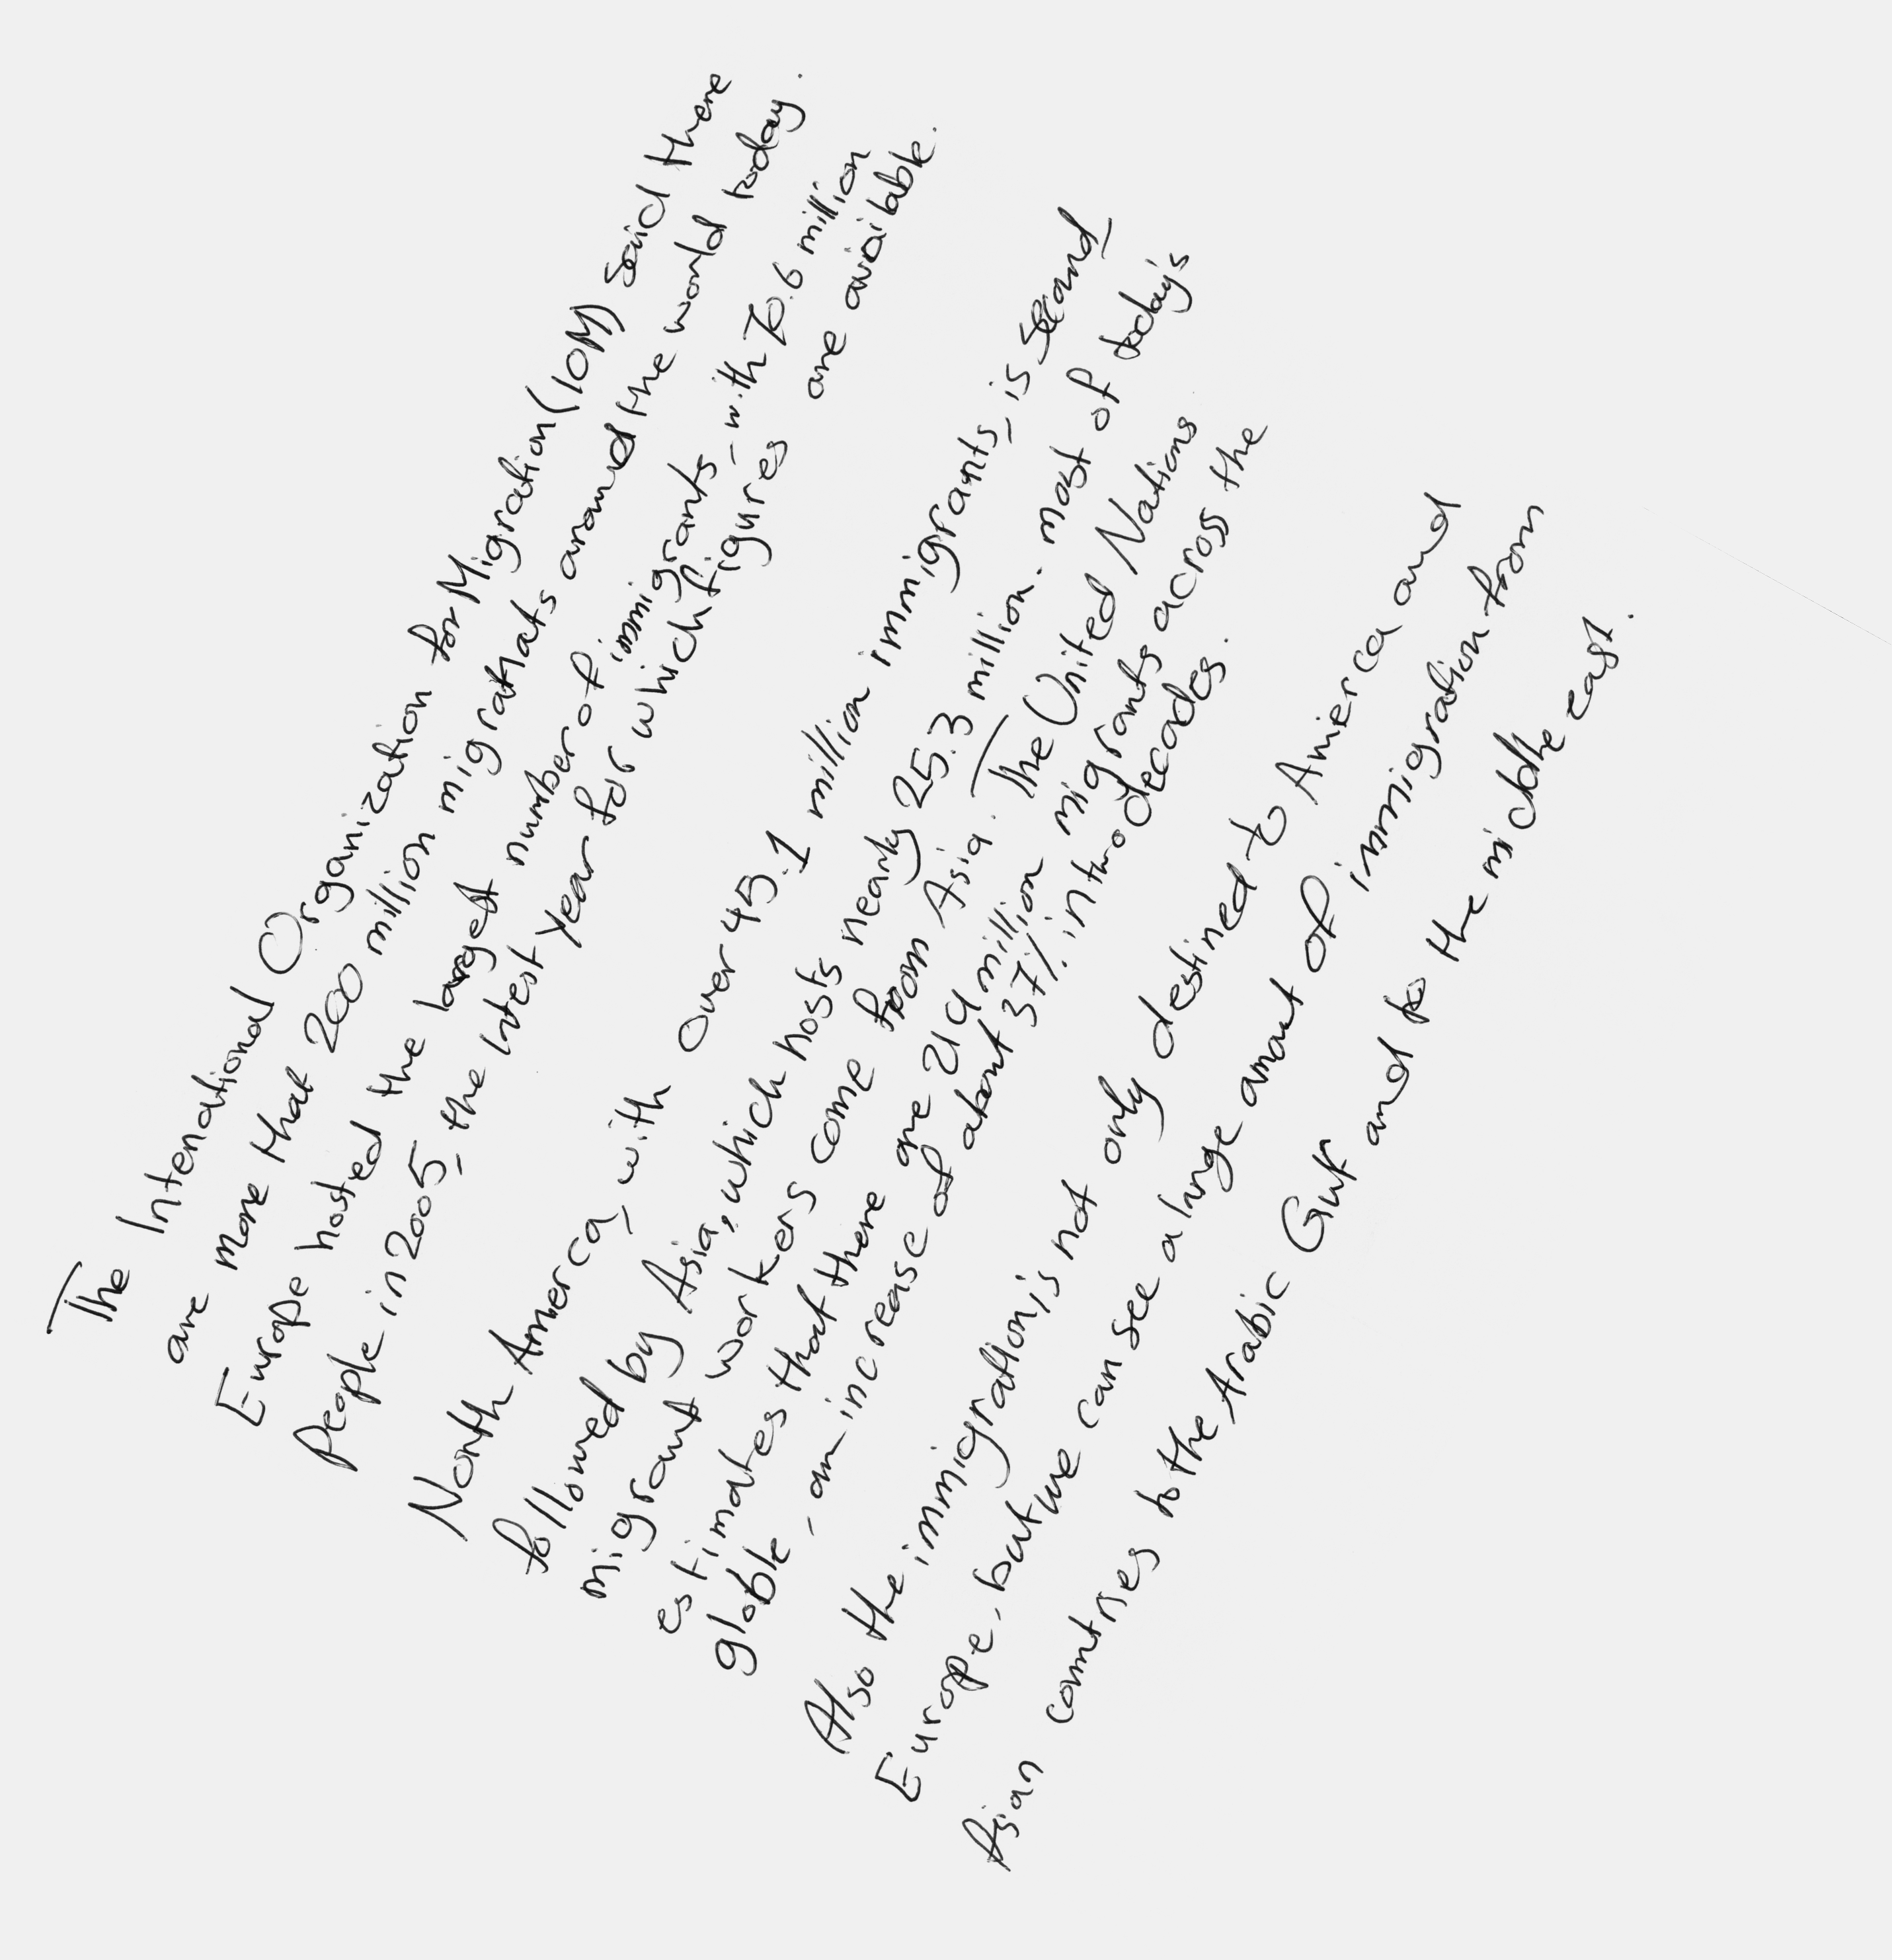 The Intenational Organization for Migration (IOM) said there
are more that 200 million migratnats around the world today.
Europe hosted the largest number of immigrants - with 70.6 million
People in 2005 - the latest year for which figures are available.
North Amerca, with over 45.1 million immigrants, is second
followed by Asia, which hosts nearly 25.3 million. most of today's
migrant workers come from Asia. The United Nations
estimates that there are 214 million migrants across the
globle - an increase of about 37% in two decades.
Also the immigration is not only destined to Amierca and
Europe, but we can see a large amount of immigration from
Asian countries to the Arabic Gulf and to the middle east.